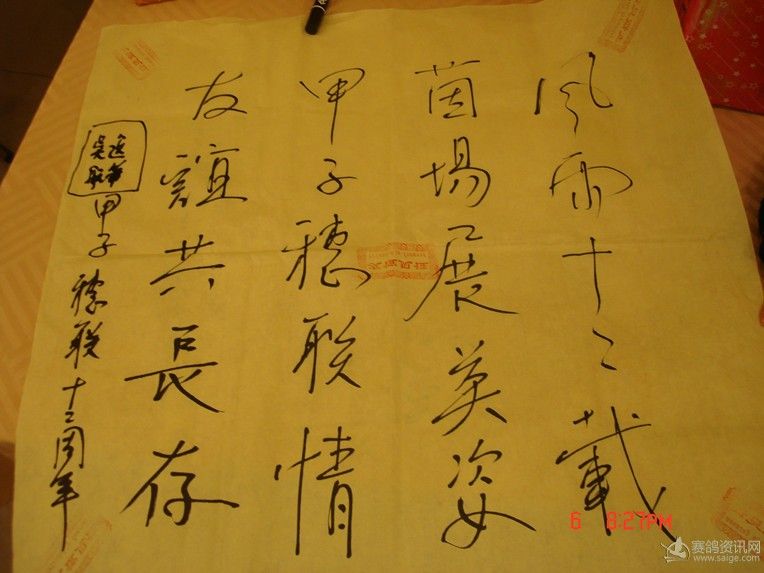 风雨十二載
茵場展英姿
甲子穗联情
友誼共長存
甲子穗联十二周年
6 8:27PM
赛鸽资讯网
www.saige.com